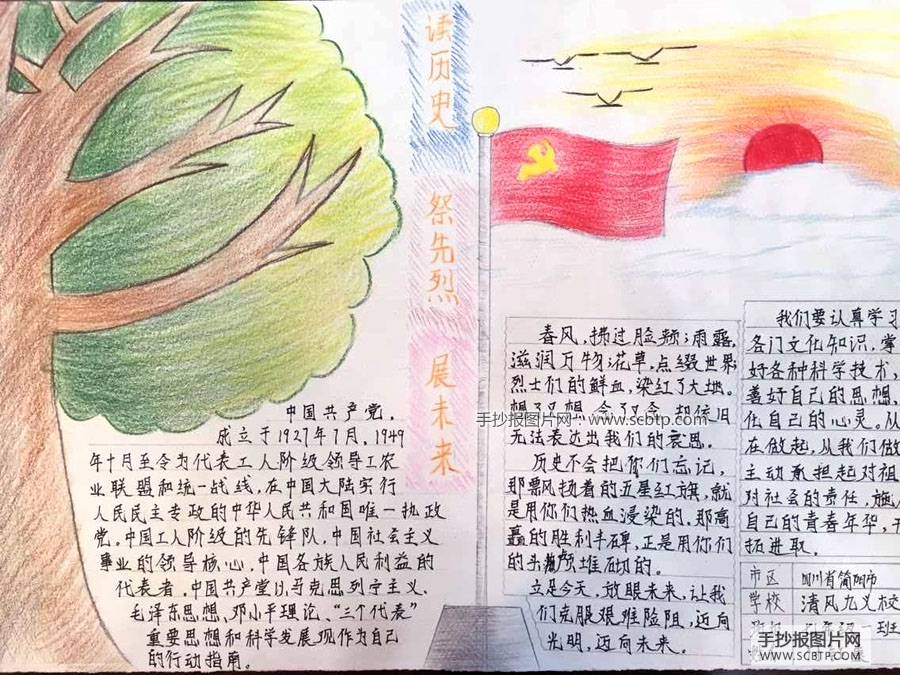 读历史
祭先烈
展未来
中国共产党,
成立于1927年7月,1949
年十月至今为代表工人阶级领导工农
业联盟和统一战线,在中国大陆实行
人民民主专政的中华人民共和国唯一执政
党。中国工人阶级的先锋队,中国社会主义
事业的领导核心,中国各族人民利益的
代表者。中国共产党以马克思列宁主义、
毛泽东思想、邓小平理论、“三个代表”
重要思想和科学发展观作为自己
的行动指南。
春风,拂过脸颊;雨露,
滋润万物花草,点缀世界
烈士们的鲜血,染红了大地。
想了又想,念了又念,却依旧
无法表达出我们的哀思。
历史不会把你们忘记,
那飘扬着的五星红旗,就
是用你们热血浸染的。那高
矗的胜利丰碑,正是用你们
的头颅堆砌的。
立足今天,放眼未来,让我
们克服艰难险阻,迈向
光明,迈向未来。
我们要认真学习
各门文化知识,掌
好各种科学技术,
善好自己的思想,
化自己的心灵。从
在做起,从我们做
主动承担起对祖
对社会的责任,施
自己的青春年华,开
拓进取。
市区 四川省简阳市
学校 清风九义校
班
手抄报图片网:www.scbtp.com
手抄报图片网
WWW.SCBTP.COM